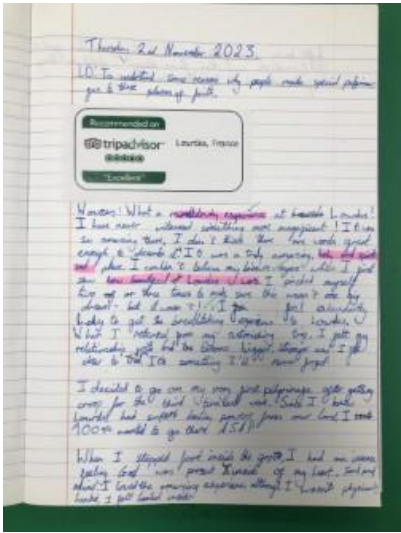 Thursday 2nd November 2023.
LO: To understand some reasons why people made special pilgrima-
ges to places of faith.
Recommended on
tripadvisor Lourdes, France
"Excellent"
Wowzers! What a mindblowing experience at Lourdes!
I have never witnessed something more magnificent! It was
an amazing there, I don't think there are words great
enough to describe it! It was a truly amazing, holy and
place. I couldn't believe my when I first
saw how beautiful Lourdes was. I pinched myself
two or three times to make sure this wasn't
dream - but it wasn't! I feel extremely
lucky to got to experience Lourdes.
When I returned from my astonishing trip, I felt my
relationship with God had become bigger, I felt
closer to God. It's something I'll never forget!
I decided to go on my very first pilgrimage after getting
for the third week. Since I
Lourdes had superb healing powers from our Lord, I
100% wanted to go there ASAP!
When I stepped foot inside the grotto, I had an
feeling God was present inside of my heart, soul and
mind. I loved the amazing experience, although I wasn't physically
healed, I felt healed inside!